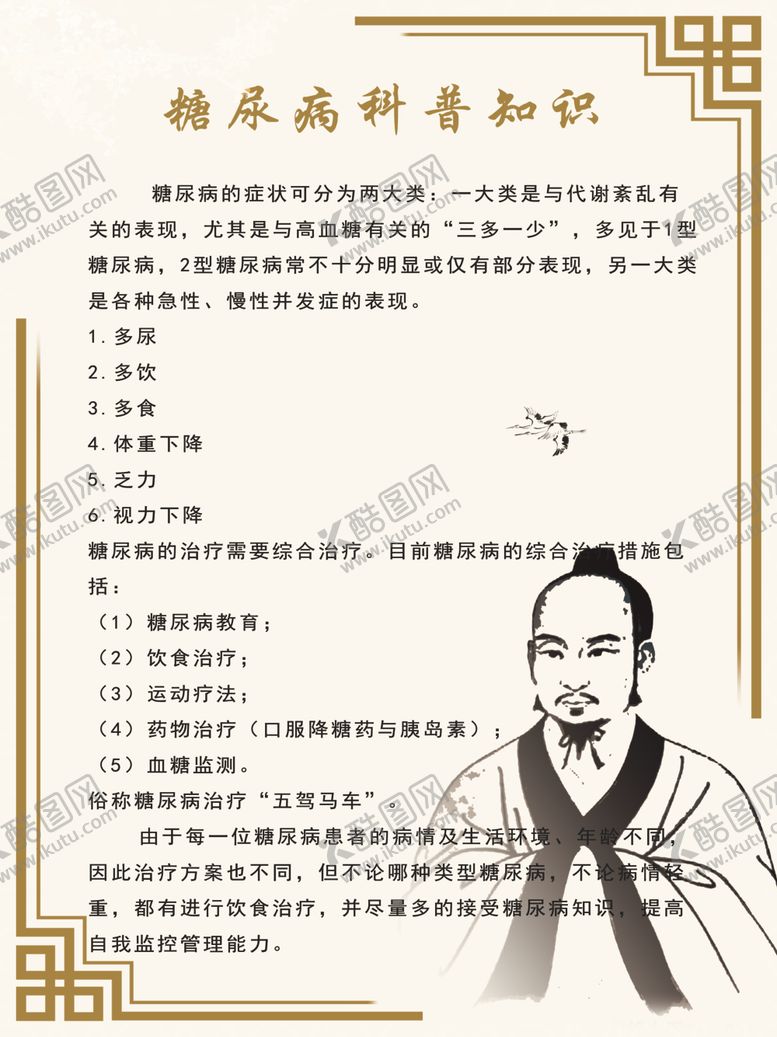 糖尿病科普知识
糖尿病的症状可分为两大类：一大类是与代谢紊乱有
关的表现，尤其是与高血糖有关的“三多一少”，多见于1型
糖尿病，2型糖尿病常不十分明显或仅有部分表现，另一大类
是各种急性、慢性并发症的表现。
1.多尿
2.多饮
3.多食
4.体重下降
5.乏力
6.视力下降
糖尿病的治疗需要综合治疗。目前糖尿病的综合治疗措施包
括：
（1）糖尿病教育；
（2）饮食治疗；
（3）运动疗法；
（4）药物治疗（口服降糖药与胰岛素）；
（5）血糖监测。
俗称糖尿病治疗“五驾马车”。
由于每一位糖尿病患者的病情及生活环境、年龄不同，
因此治疗方案也不同，但不论哪种类型糖尿病，不论病情轻
重，都有进行饮食治疗，并尽量多的接受糖尿病知识，提高
自我监控管理能力。
酷图网
www.ikutu.com